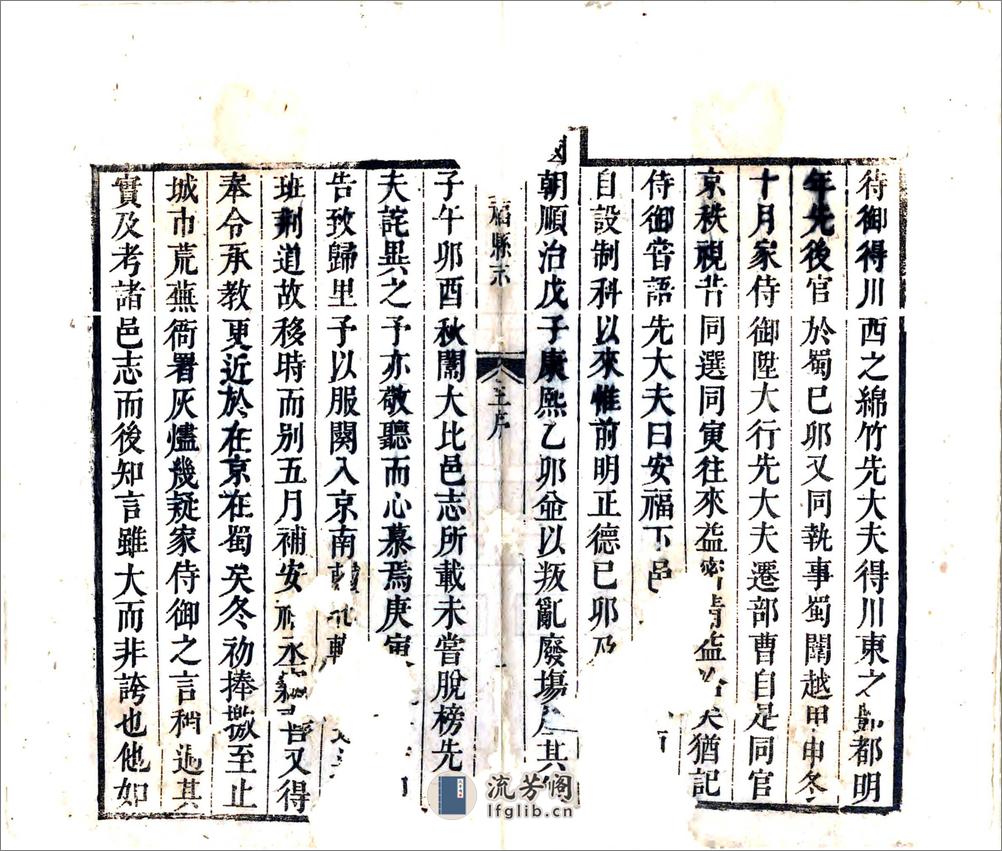 侍御得川西之綿竹先大夫得川東之酆都明
年先後官於蜀已卯又同執事蜀闈越甲申冬
十月家侍御陞大行先大夫遷部曹自是同官
京秩視昔同選同寅往來益密情益洽矣猶記
侍御嘗語先大夫曰安福下邑
自設制科以來惟前明正德已卯及
國朝順治戊子康熙乙卯並以叛亂廢塲屋其
子午卯酉秋闈大比邑志所載未嘗脫榜先
夫詫異之予亦敬聽而心慕焉庚寅
告致歸里予以服闋入京南轅北轍
班荆道故移時而别五月補安福丞又得
奉令承教更近於在京在蜀矣冬初捧檄至止
城市荒蕪衙署灰燼幾疑家侍御之言稍過其
實及考諸邑志而後知言雖大而非誇也他如
福縣志
序
流芳阁
lfglib.cn